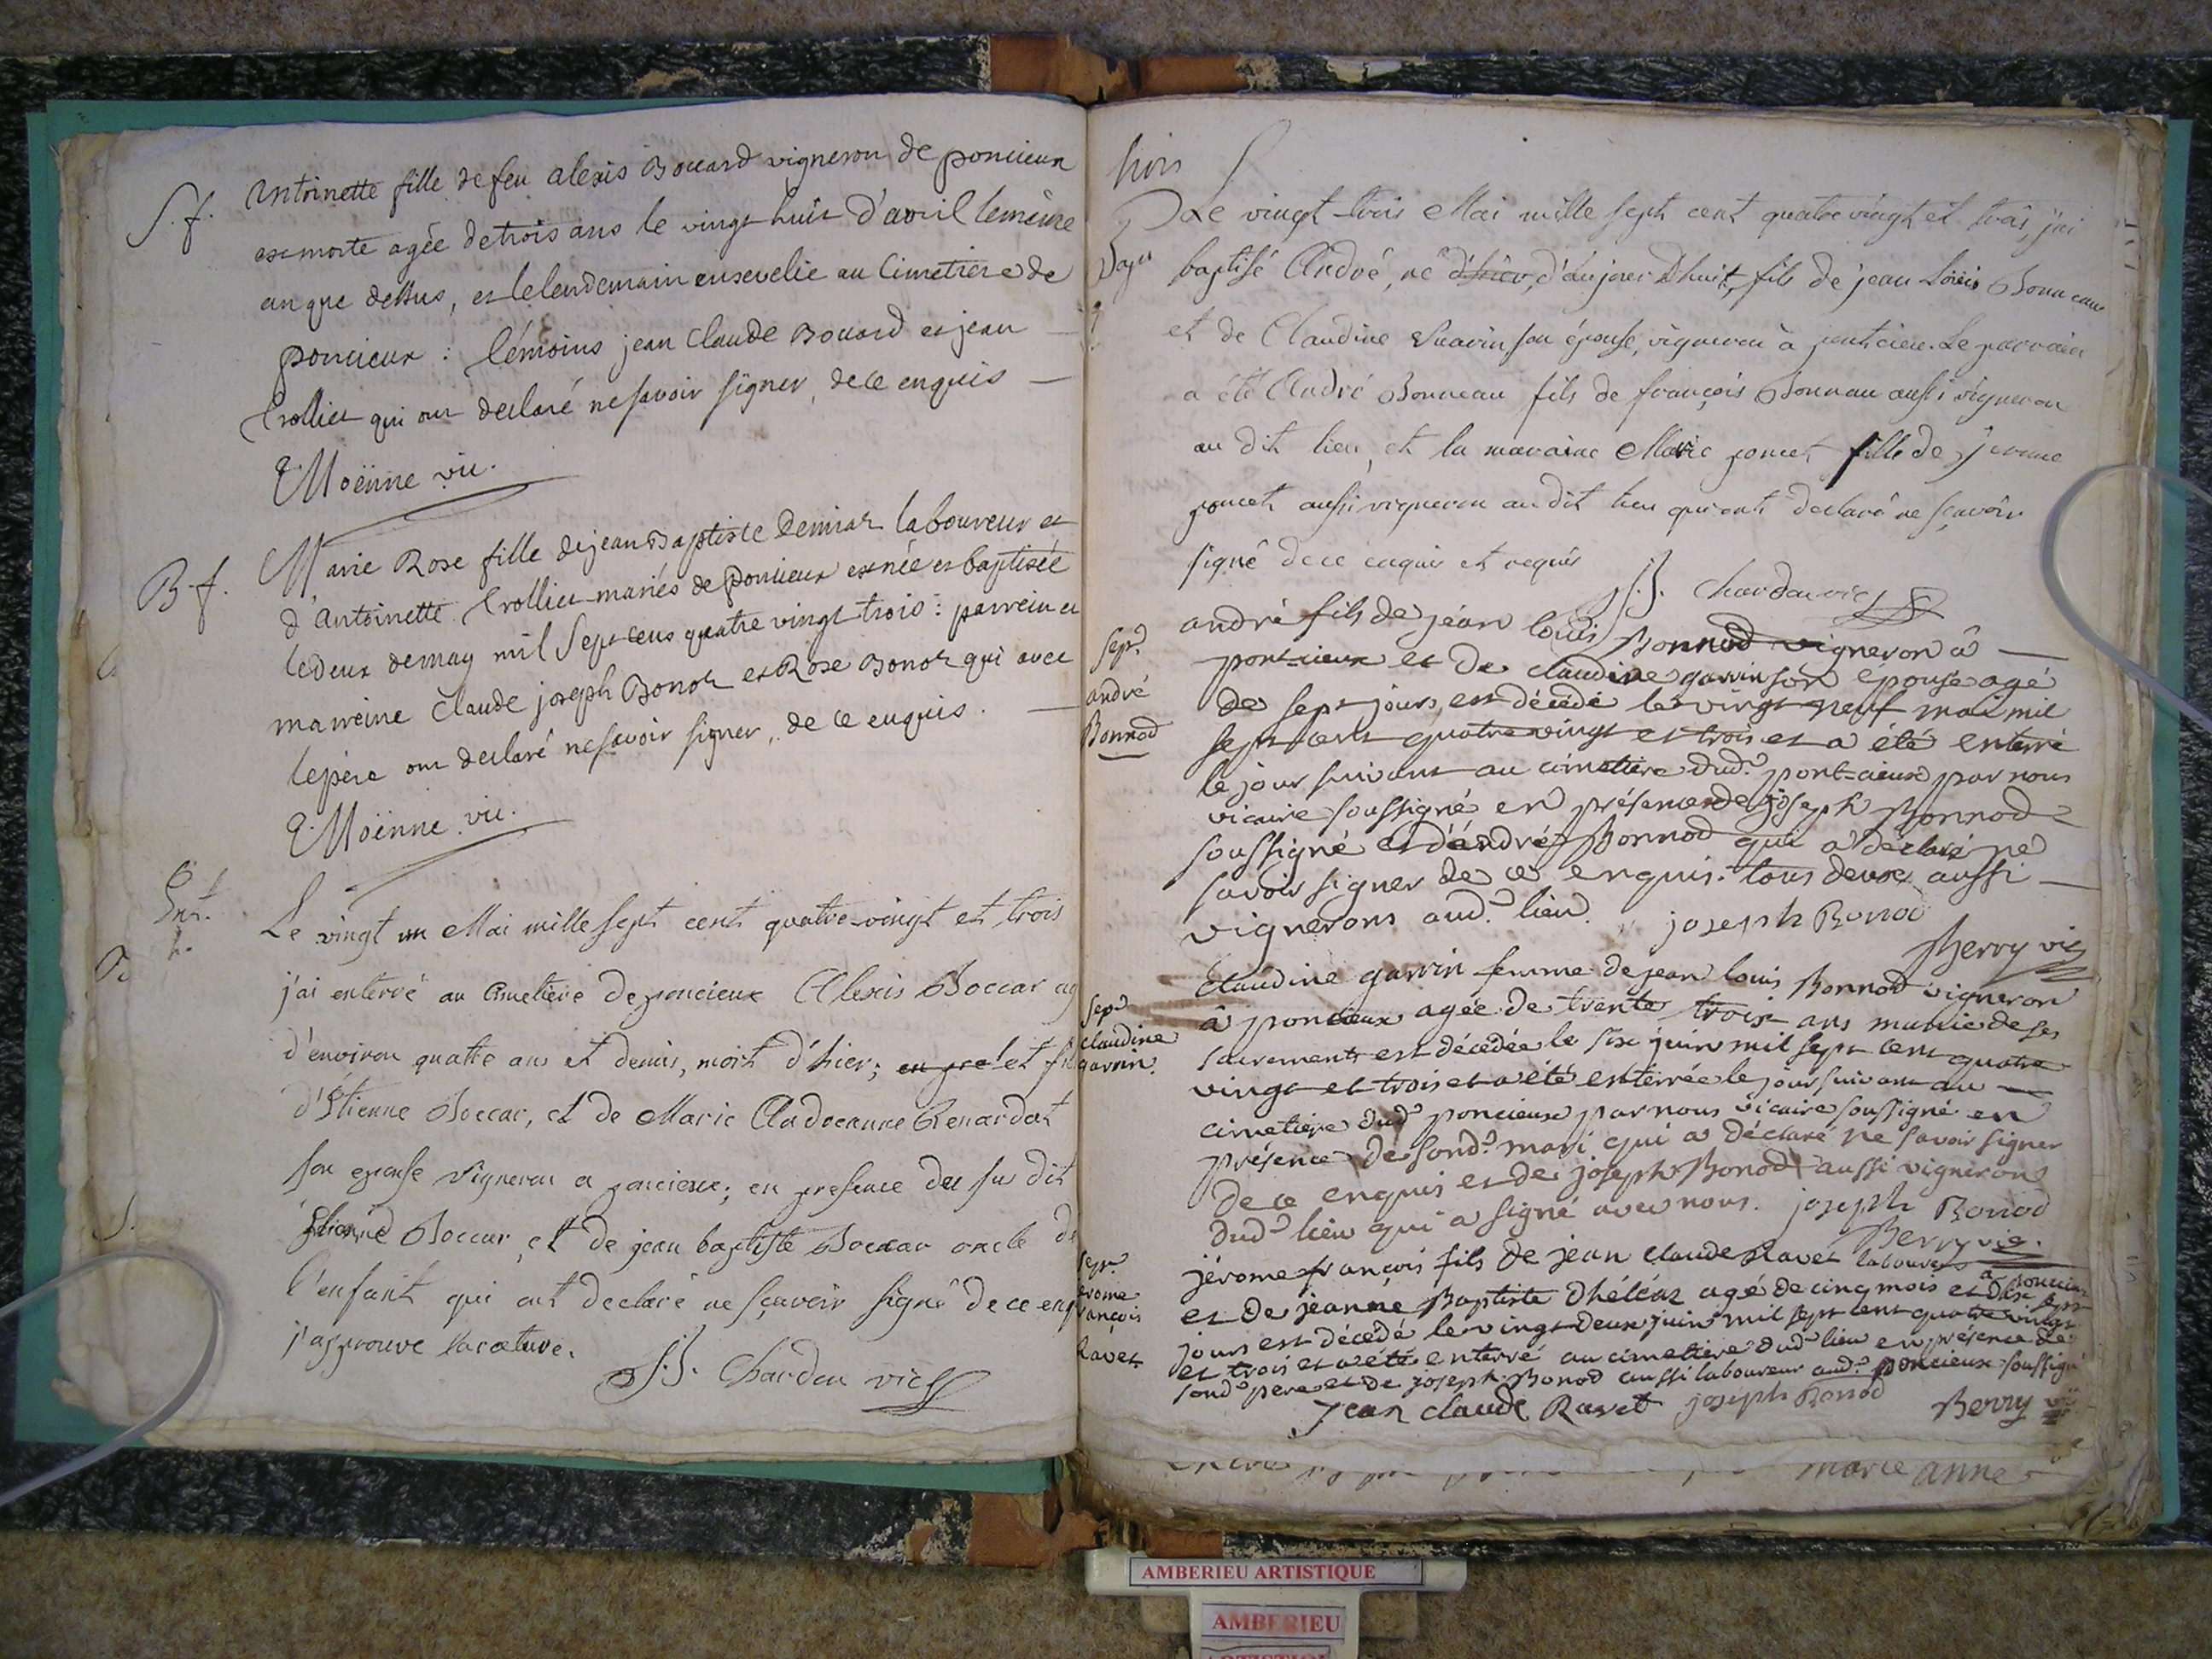 S. f.
Antoinette fille de feu alexis Bouard vigneron de poncieux
est morte agée de trois ans le vingt huit d'avril le même
an que dessus, et le lendemain ensevelie au Cimetiere de
poncieux : témoins jean Claude Bouard et jean
trollier qui ont declaré ne savoir signer, de ce enquis
Moënne vic.
B. f.
Marie Rose fille de jean Baptiste laboureur et
d'Antoinette trollier mariés de poncieux est née et baptisée
le deux de may mil sept cens quatre vingt trois : parrein et
marreine Claude joseph Bonot et Rose Bonot qui avec
le père ont declaré ne savoir signer, de ce enquis.
Moënne vic.
Ent.
Le vingt un Mai mille sept cent quatre-vingt et trois
j'ai enterré au Cimetiére de poncieux Alexis Boccar ag
d'environ quatre ans et demis, mort d'hier; et fil
d'Etienne Boccar, et de Marie Renardat
son epouse vigneron a poncieux; en presence du su dit
Etienne Boccar, et de jean baptiste Boccar oncle de
l'enfant qui ont declaré ne sçavoir signé de ce enq
j'approuve la rature.
J.J. Chardon vic
trois
Le vingt-trois Mai mille sept cent quatre vingt et trois, j'ai
baptisé André, né d'hier, d'aujourd'huit, fils de jean Louis Bonneau
et de Claudine Guarin son épouse, vigneron à pontcieu. Le parrain
a été André Bonneau fils de françois Bonnau aussi vigneron
au dit lieu, et la maraine Marie poncet fille de jerome
poncet aussi vigneron au dit lieu qui ont declaré ne sçavoir
signé de ce enquis et requis
J.J. Chardon vic
sep.re
andré
Bonnod
andré fils de jéan louis Bonnod vigneron â
pont-cieux et de claudine garvin son épouse agé
de sept jours, est décédé le vingt neuf mai mil
sept cent quatre vingt et trois et a été enterré
le jour suivant au cimetiere dud.t pont-cieux par nous
vicaire soussigné en présence de joseph Bonnod
soussigné et d'andré Bonnod qui a déclaré ne
savoir signer de ce enquis. tous deux aussi
vignerons aud.t lieu. joseph Bonod
Berry vic
sep.re
claudine
garvin.
Claudine garvin femme de jean louis Bonnod vigneron
â poncieux agée de trente trois ans munie de ses
sacrements est décédée le six juin mil sept cent quatre
vingt et trois et a été enterrée le jour suivant au
cimetiere dud.t poncieux par nous vicaire soussigné en
présence de sond.t mari qui a déclaré ne savoir signer
de ce enquis et de joseph Bonod aussi vigneron
dud.t lieu qui a signé avec nous. joseph Bonod
Berry vic.
sep.re
jerome
françois
Ravet
jérome françois fils de jean claude Ravet laboureur a poncieux
et de jeanne Baptiste agé de cinq mois et dix sept
jours est décédé le vingt deux juin mil sept cent quatre vingt
et trois et a été enterré au cimetiere dud.t lieu en présence de
sond.t pere et de joseph Bonod aussi laboureur aud.t poncieux soussigné
jean claude Ravet joseph Bonod Berry vic
marie anne
AMBERIEU ARTISTIQUE
AMBERIEU